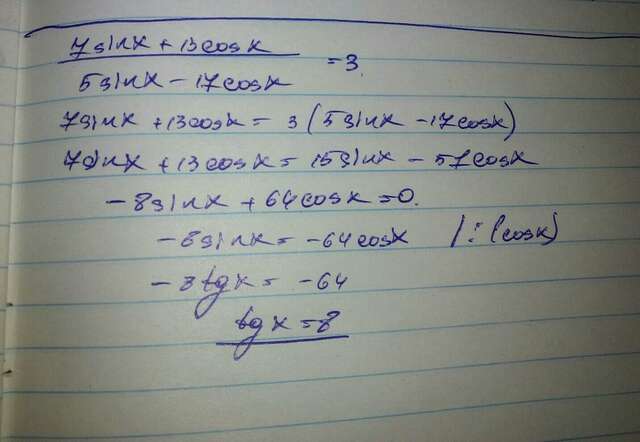 7sinx + 13cosx
= 3
5sinx - 17cosx
7sinx + 13cosx = 3 (5sinx - 17cosx)
7sinx + 13cosx = 15sinx - 51cosx
-8sinx + 64cosx = 0.
-8sinx = -64cosx |:(cosx)
-8tgx = -64
tgx = 8